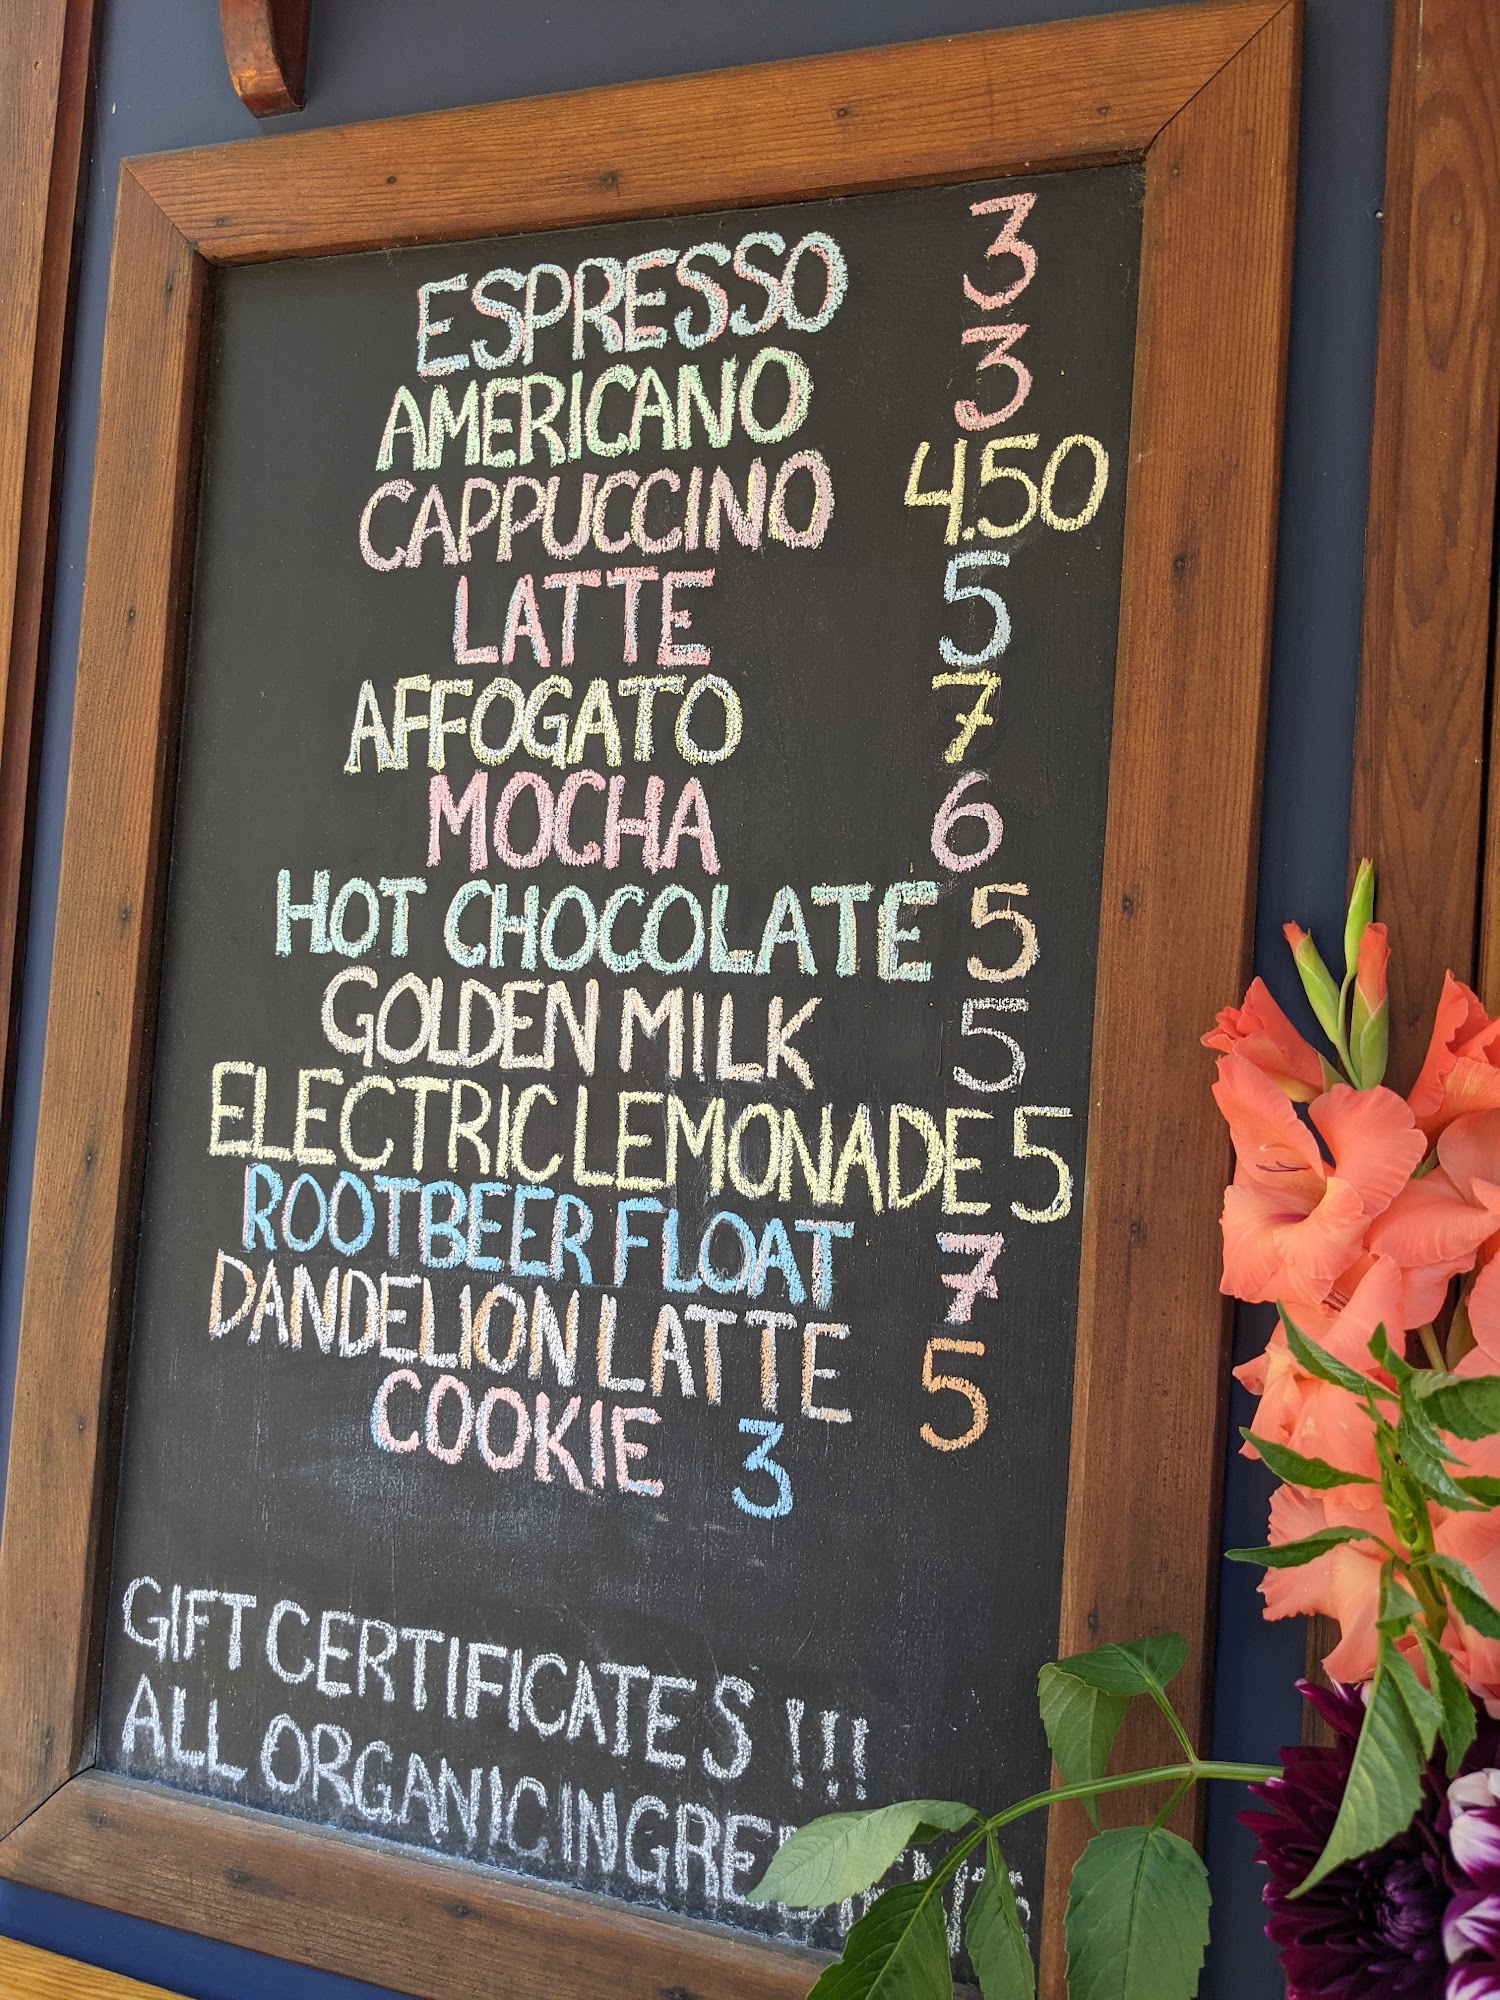 ESPRESSO 3
AMERICANO 3
CAPPUCCINO 4.50
LATTE 5
AFFOGATO 7
MOCHA 6
HOT CHOCOLATE 5
GOLDEN MILK 5
ELECTRIC LEMONADE 5
ROOTBEER FLOAT 7
DANDELION LATTE 5
COOKIE 3
GIFT CERTIFICATES !!!
ALL ORGANIC